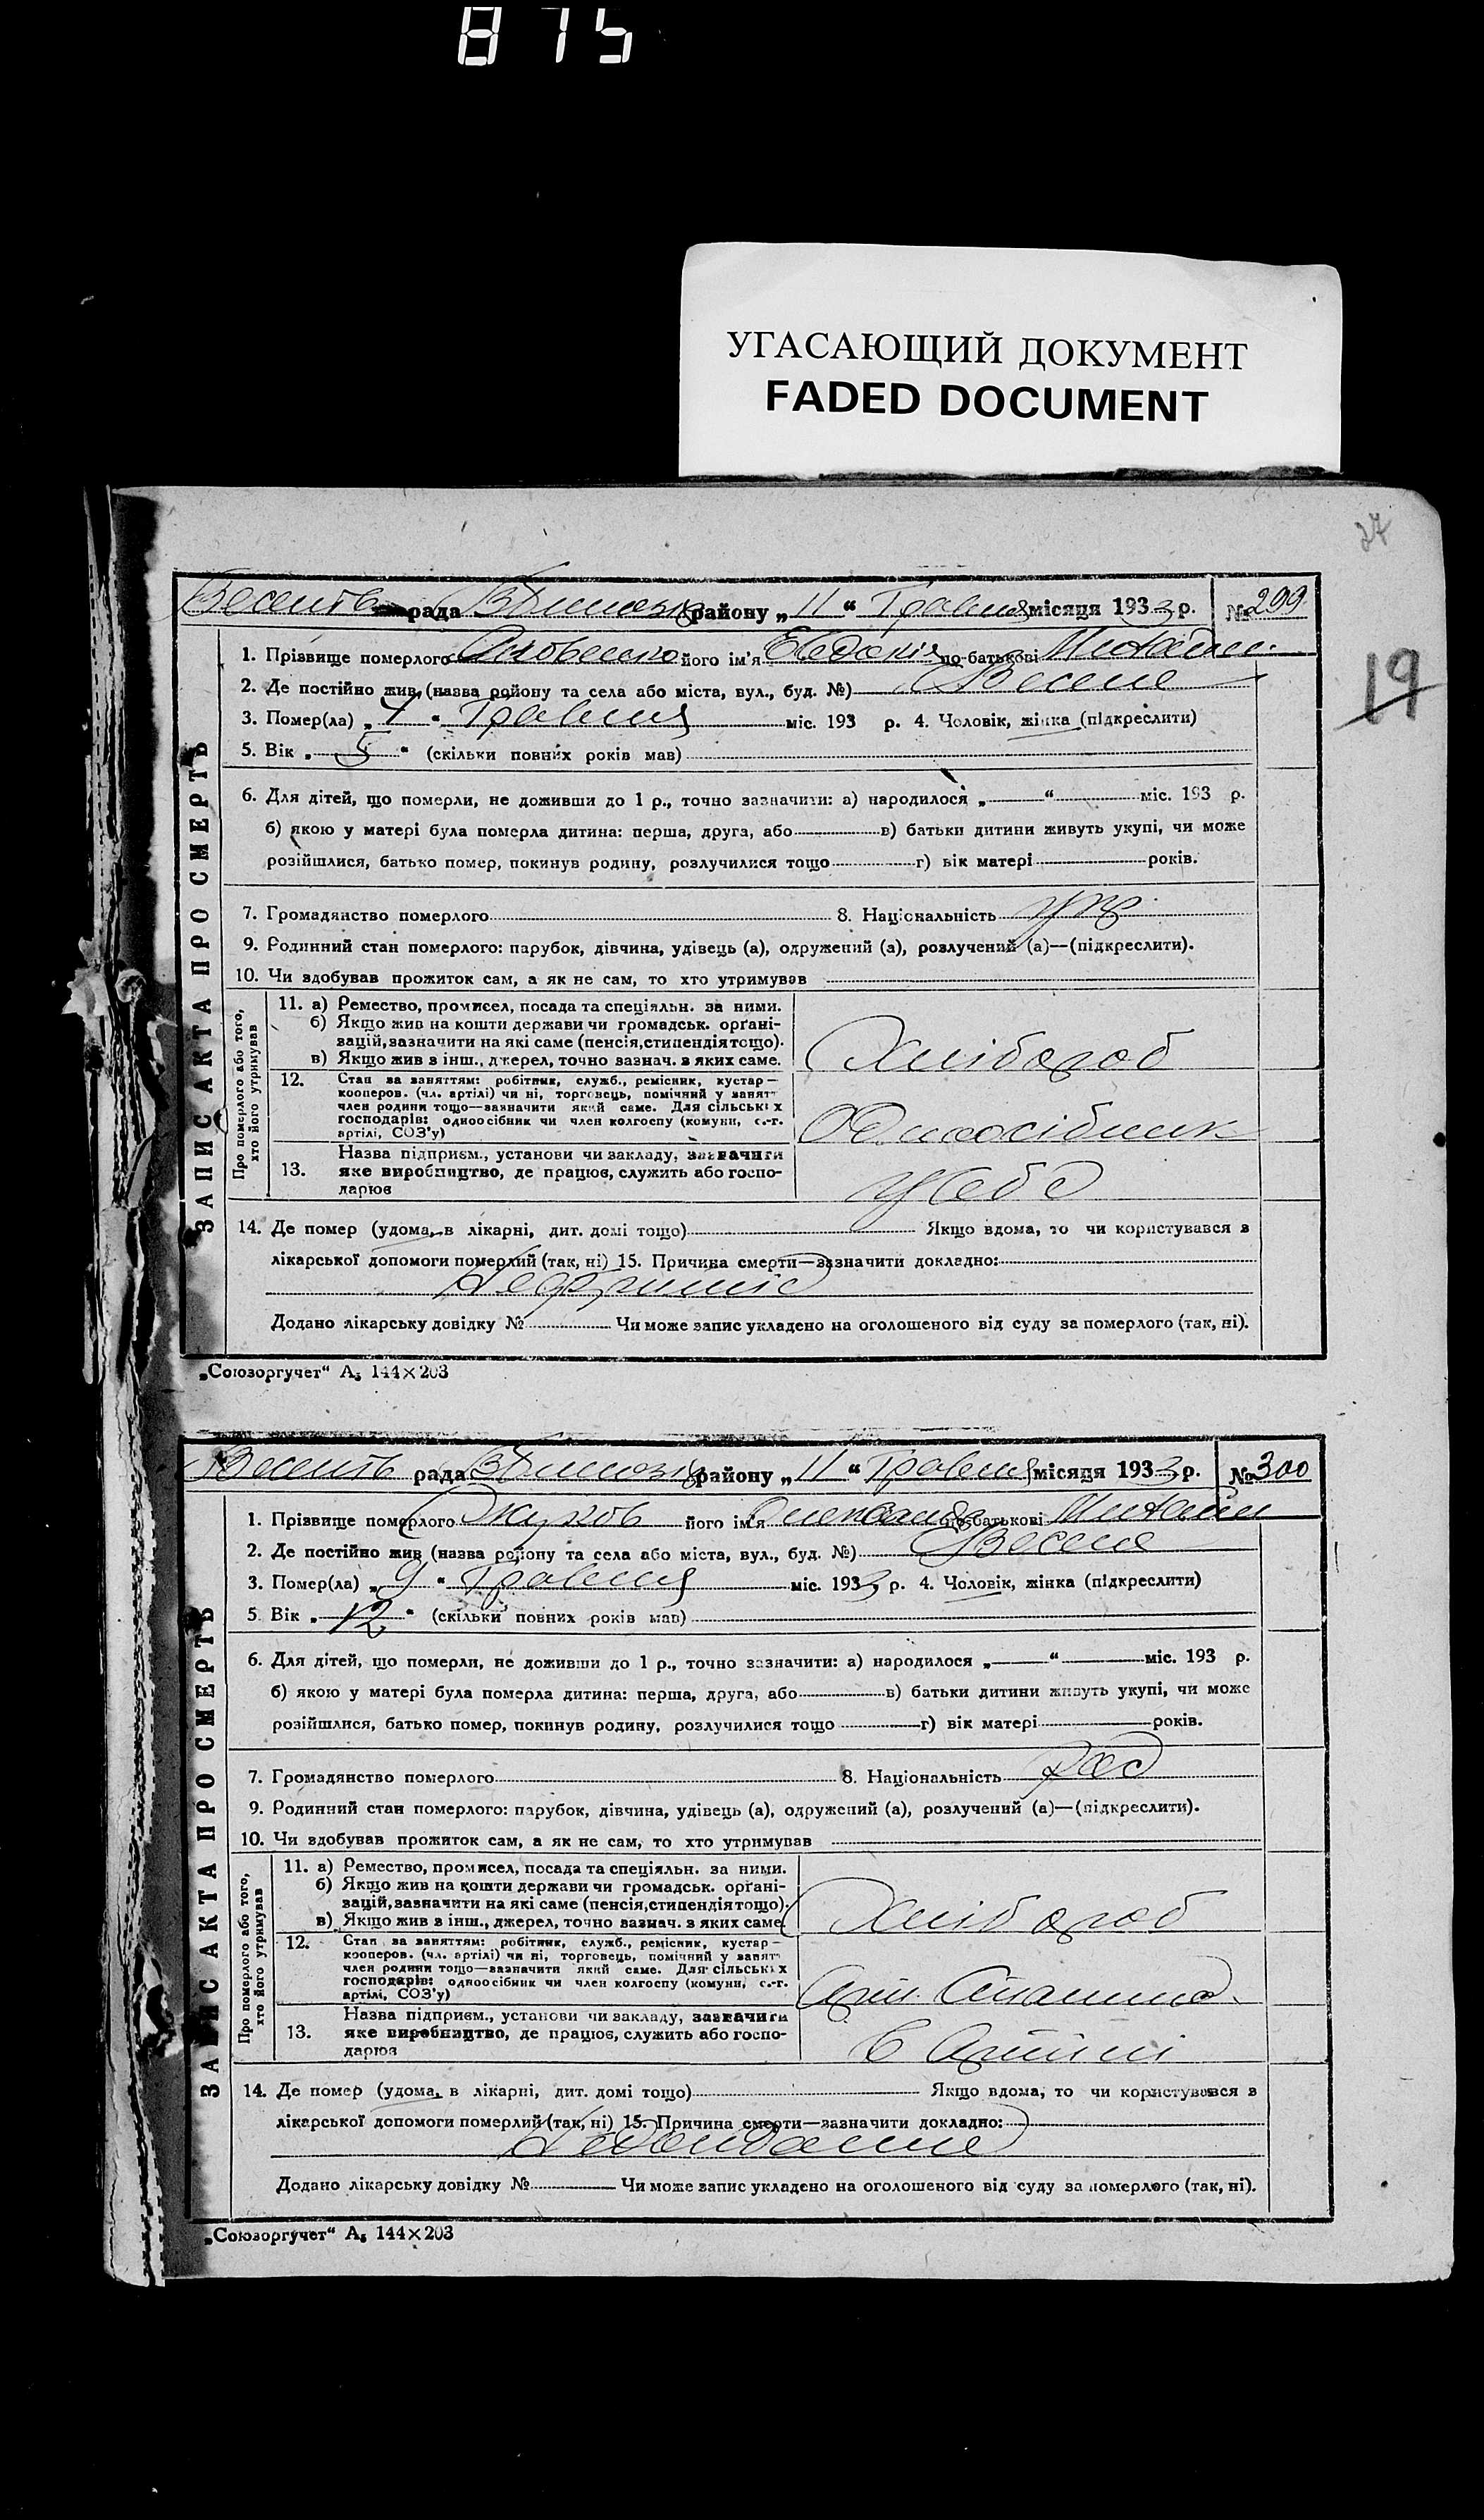 875
УГАСАЮЩИЙ ДОКУМЕНТ
FADED DOCUMENT
27
19
рада району „11“ Травня місяця 1933 р. № 299
1. Прізвище померлого його ім'я Евдокія по-батькові
2. Де постійно жив (назва району та села або міста, вул., буд. №) Веселе
3. Помер(ла) „ “ Травня міс. 193 р. 4. Чоловік, жінка (підкреслити)
5. Вік „5“ (скільки повних років мав)
6. Для дітей, що померли, не доживши до 1 р., точно зазначити: а) народилося „ “ міс. 193 р.
б) якою у матері була померла дитина: перша, друга, або в) батьки дитини живуть укупі, чи може
розійшлися, батько помер, покинув родину, розлучилися тощо г) вік матері років.
7. Громадянство померлого 8. Національність укр
9. Родинний стан померлого: парубок, дівчина, удівець (а), одружений (а), розлучений (а)—(підкреслити).
10. Чи здобував прожиток сам, а як не сам, то хто утримував
Про померлого або того, хто його утримував
11. а) Ремество, промисел, посада та спеціяльн. за ними.
б) Якщо жив на кошти держави чи громадськ. орґані-
зацій, зазначити на які саме (пенсія, стипендія тощо).
в) Якщо жив з інш., джерел, точно зазнач. з яких саме.
Хлібороб
12. Стан за заняттям: робітник, служб., ремісник, кустар—
кооперов. (чл. артілі) чи ні, торговець, помічний у занятт
член родини тощо—зазначити який саме. Для сільських
господарів: одноосібник чи член колгоспу (комуни, с.-г.
артілі, СОЗ'у)
Одноосібник
13. Назва підприєм., установи чи закладу, зазначити
яке виробництво, де працює, служить або госпо-
дарює
У себе
14. Де помер (удома, в лікарні, дит. домі тощо) Якщо вдома, то чи користувався з
лікарської допомоги померлий (так, ні) 15. Причина смерти—зазначити докладно:
Додано лікарську довідку № Чи може запис укладено на оголошеного від суду за померлого (так, ні).
ЗАПИС АКТА ПРО СМЕРТЬ
„Союзоргучет“ А₅ 144×203
рада району „11“ Травня місяця 1933 р. № 300
1. Прізвище померлого Жуков його ім'я по-батькові
2. Де постійно жив (назва району та села або міста, вул., буд. №) Веселе
3. Помер(ла) „9“ Травня міс. 1933 р. 4. Чоловік, жінка (підкреслити)
5. Вік „12“ (скільки повних років мав)
6. Для дітей, що померли, не доживши до 1 р., точно зазначити: а) народилося „ “ міс. 193 р.
б) якою у матері була померла дитина: перша, друга, або в) батьки дитини живуть укупі, чи може
розійшлися, батько помер, покинув родину, розлучилися тощо г) вік матері років.
7. Громадянство померлого 8. Національність
9. Родинний стан померлого: парубок, дівчина, удівець (а), одружений (а), розлучений (а)—(підкреслити).
10. Чи здобував прожиток сам, а як не сам, то хто утримував
Про померлого або того, хто його утримував
11. а) Ремество, промисел, посада та спеціяльн. за ними.
б) Якщо жив на кошти держави чи громадськ. орґані-
зацій, зазначити на які саме (пенсія, стипендія тощо).
в) Якщо жив з інш., джерел, точно зазнач. з яких саме.
Хлібороб
12. Стан за заняттям: робітник, служб., ремісник, кустар—
кооперов. (чл. артілі) чи ні, торговець, помічний у занятт
член родини тощо—зазначити який саме. Для сільських
господарів: одноосібник чи член колгоспу (комуни, с.-г.
артілі, СОЗ'у)
13. Назва підприєм., установи чи закладу, зазначити
яке виробництво, де працює, служить або госпо-
дарює
в Артілі
14. Де помер (удома, в лікарні, дит. домі тощо) Якщо вдома, то чи користувався з
лікарської допомоги померлий (так, ні) 15. Причина смерти—зазначити докладно:
Додано лікарську довідку № Чи може запис укладено на оголошеного від суду за померлого (так, ні).
ЗАПИС АКТА ПРО СМЕРТЬ
„Союзоргучет“ А₅ 144×203